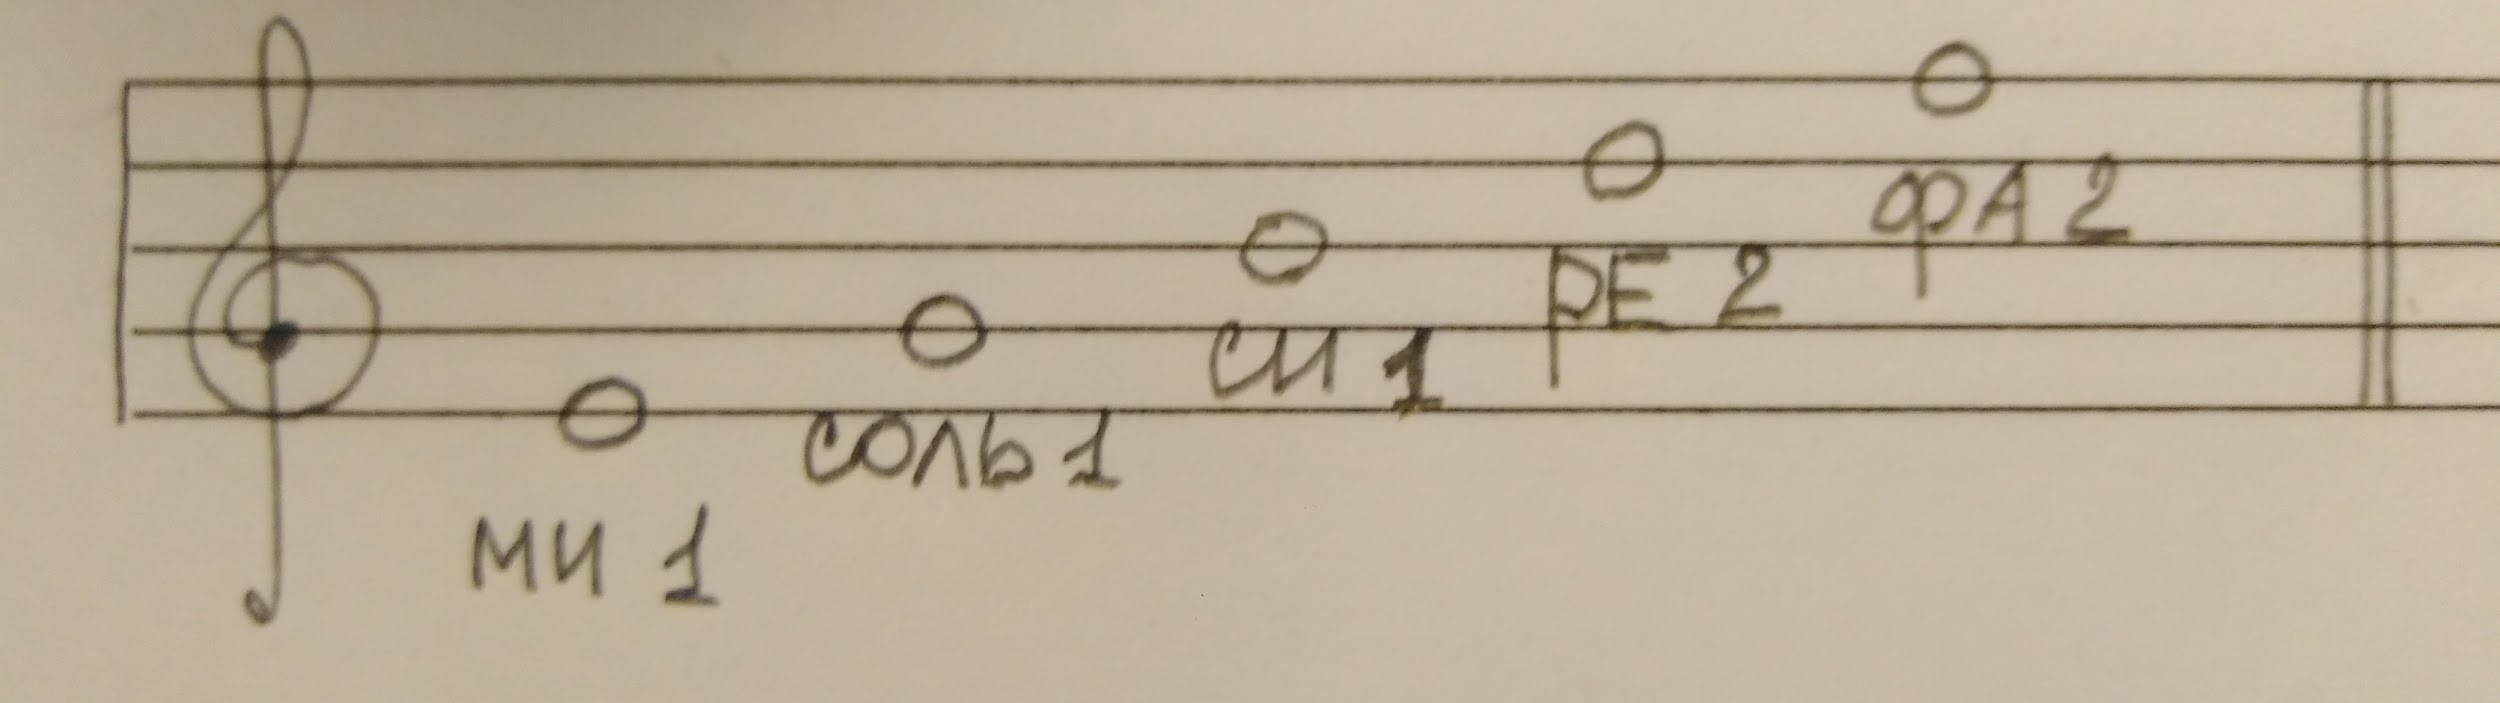 МИ 1
СОЛЬ 1
СИ 1
РЕ 2
ФА 2